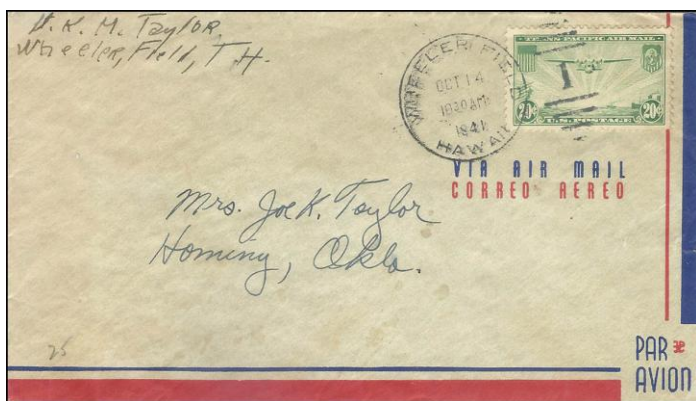 Lt. K. M. Taylor.
Wheeler, Field, T.H.
WHEELER FIELD
OCT 14
1030 AM
1941
HAWAII
1
TRANS-PACIFIC AIR MAIL
20¢ 20¢
U.S. POSTAGE
VIA AIR MAIL
CORREO AEREO
Mrs. Joe K. Taylor
Hominy, Okla.
25
PAR
AVION